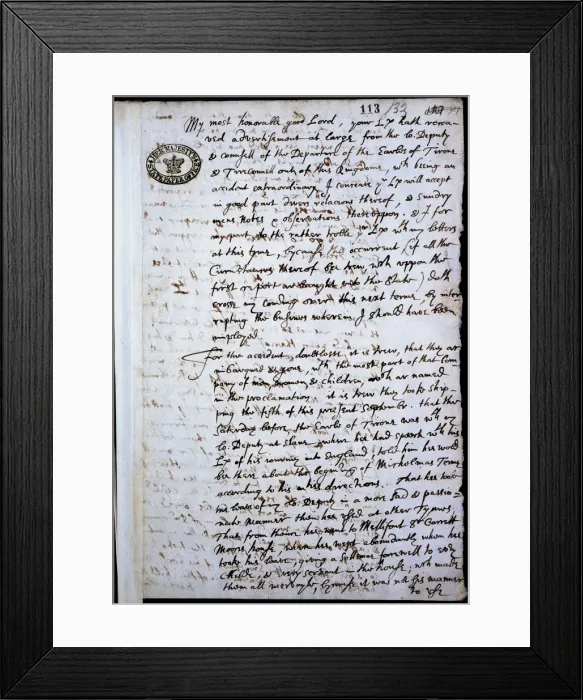 113 132
My most honorable good Lord, your Lp hath recea-
ved advertisment at large from the Lo: Deputy
& Counsell of the Departure of the Earles of Tirone
& Tirconnell out of this Kingdome, wch being an
accident extraordinary, I conceave yr Lp will accept
in good part divers relacions thereof, & sundry
mens Notes & observations thereuppon. & I for
my part do the rather troble yr Lp wth my letters
at this tyme, because this occurrent (if all the
Circumstances thereof bee trew, wch uppon the
first report was brought unto the State) doth
crosse my coming over this next terme, by inter-
rupting the busines wherein I should have been
employed.
For the accident, doubtless it is trew, that they ar
imbarqued & gone, with the most part of that Com-
pany of men, women & children, wch ar named
in the proclamation. it is trew they tooke ship-
ping the fifth of this present September. that the
Saterday before the Earle of Tirone was wth my
Lo: Deputy at Slane, where hee had speech wth his
Lp of his journey into England; told him hee wold
bee there about the begining of Michelmas Terme
according to his directions. That hee tooke
his leave of my lo: Deputy in a more sad & passio-
nate manner then hee used at other Tymes,
That from thence hee went to Mellifont Sr Garrett
Moors house where hee wept aboundantly when hee
tooke his leave, giving a solemne farewell to every
Child, & every servant in the house; wch made
them all mervayle, because it was not his manner
to use